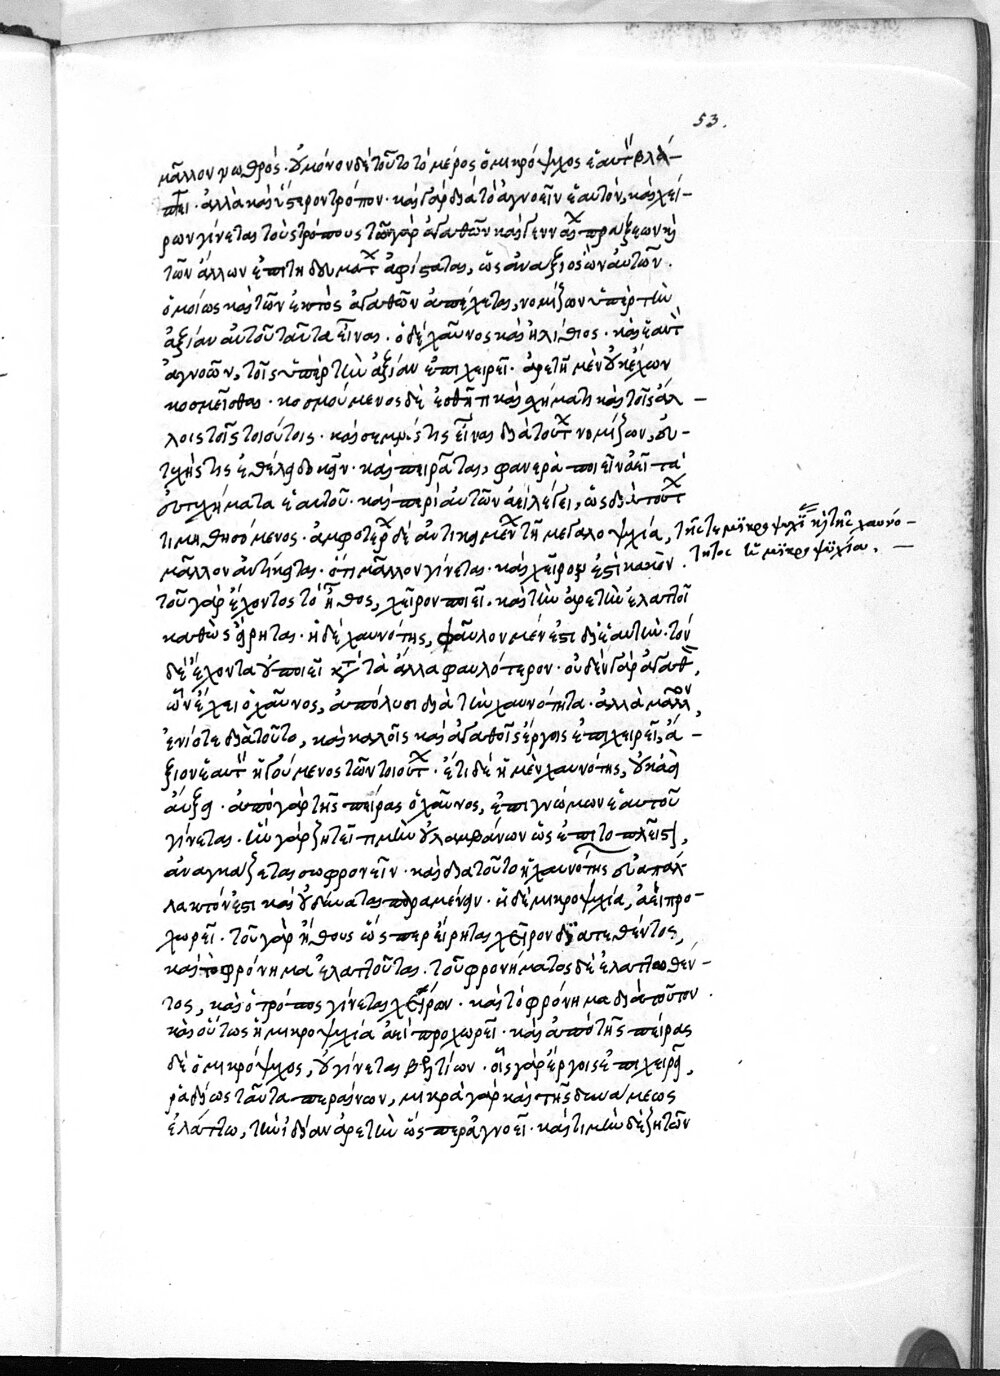 53.
μᾶλλον νωθρός· οὐ μόνον δὲ τοῦτο τὸ μέρος ὁ μικρόψυχος ἑαυτὸν βλά-
πτει· ἀλλὰ καὶ ὕστερον τρόπον· καὶ γὰρ διὰ τὸ ἀγνοεῖν ἑαυτὸν, καὶ χεί-
ρων γίνεται τοὺς τρόπους τῶν γὰρ ἀγαθῶν καὶ γενναίων πράξεων καὶ
τῶν ἄλλων ἐπιτηδευμάτων ἀφίσταται, ὡς ἀνάξιος ὢν αὐτῶν.
ὁμοίως καὶ τῶν ἐκτὸς ἀγαθῶν ἀπέχεται, νομίζων ὑπὲρ τὴν
ἀξίαν αὐτοῦ ταῦτα εἶναι· ὁ δὲ χαῦνος καὶ ἠλίθιος· καὶ ἑαυτὸν
ἀγνοῶν, τοῖς ὑπὲρ τὴν ἀξίαν ἐπιχειρεῖ· ἀρετῇ μὲν οὐκ ἔχων
κοσμεῖσθαι· κοσμούμενος δὲ ἐσθῆτι καὶ σχήματι καὶ τοῖς ἄλ-
λοις τοῖς τοιούτοις· καὶ σεμνός τις εἶναι διὰ τούτων νομίζων, εὐ-
τυχής τις ἐθέλει δοκεῖν· καὶ πειρᾶται, φανερὰ ποιεῖν ἀεὶ τὰ
εὐτυχήματα ἑαυτοῦ· καὶ περὶ αὐτῶν ἀεὶ λέγει, ὡς διὰ τούτων
τιμηθησόμενος· ἀμφότερα δὲ ἀντικείμενα τῇ μεγαλοψυχίᾳ, τῆς τε μικροψυχίας καὶ τῆς χαυνό-
τητος ἡ μικροψυχία.
μᾶλλον ἀντίκειται· ὅτι μᾶλλον γίνεται· καὶ χεῖρόν ἐστι κακόν.
τοῦ γὰρ ἔχοντος τὸ ἦθος, χεῖρον ποιεῖ· καὶ τὴν ἀρετὴν ἐλαττοῖ
καθὼς εἴρηται· ἡ δὲ χαυνότης, φαῦλον μέν ἐστι δι' ἑαυτήν· τὸν
δὲ ἔχοντα οὐ ποιεῖ κατὰ τὰ ἄλλα φαυλότερον· οὐδὲν γὰρ ἀγαθῶν,
ὧν ἔχει ὁ χαῦνος, ἀπόλυσι διὰ τὴν χαυνότητα· ἀλλὰ μᾶλλον,
ἐνίοτε διὰ τοῦτο, καὶ καλοῖς καὶ ἀγαθοῖς ἔργοις ἐπιχειρεῖ, ἄ-
ξιον ἑαυτὸν ἡγούμενος τῶν τοιούτων· ἔτι δὲ ἡ μὲν χαυνότης, οὐκ ἀεὶ
αὔξει· ἀπὸ γὰρ τῆς πείρας ὁ χαῦνος, ἐπιγνώμων ἑαυτοῦ
γίνεται· ἣν γὰρ ζητεῖ τιμὴν οὐ λαμβάνων ὡς ἐπὶ τὸ πλεῖστον,
ἀναγκάζεται σωφρονεῖν· καὶ διὰ τοῦτο ἡ χαυνότης εὐαπάλ
λακτόν ἐστι καὶ οὐ δύναται παραμένειν· ἡ δὲ μικροψυχία, ἀεὶ προ-
χωρεῖ· τοῦ γὰρ ἤθους ὥσπερ εἴρηται χεῖρον διατεθέντος,
καὶ τὸ φρόνημα ἐλαττοῦται· τοῦ φρονήματος δὲ ἐλαττωθέν-
τος, καὶ ὁ τρόπος γίνεται χείρων· καὶ τὸ φρόνημα διὰ τοῦτον.
καὶ οὕτως ἡ μικροψυχία ἀεὶ προχωρεῖ· καὶ ἀπὸ τῆς πείρας
δὲ ὁ μικρόψυχος, οὐ γίνεται βελτίων· οἷς γὰρ ἔργοις ἐπιχειρεῖ,
ῥᾳδίως ταῦτα περαίνων, μικρὰ γὰρ καὶ τῆς δυνάμεως
ἐλάττω, τὴν ἰδίαν ἀρετὴν ὥσπερ ἀγνοεῖ· καὶ τιμὴν δὲ ζητῶν